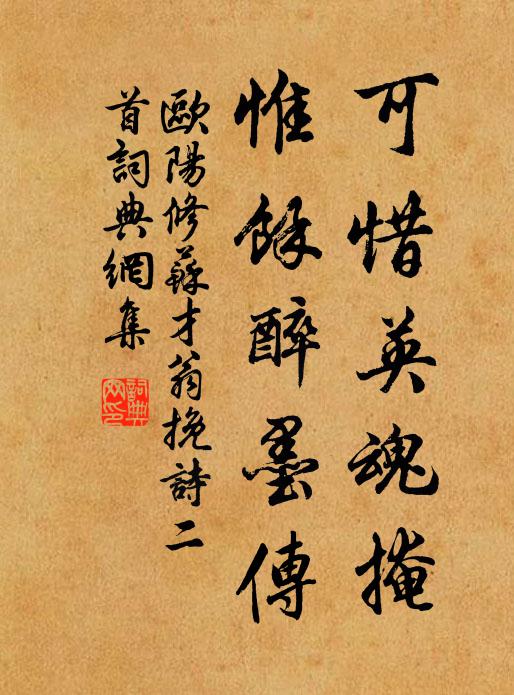 可惜英魂掩
惟餘醉墨傳
歐陽修蘇才翁挽詩二
首詞典網集
詞典網印